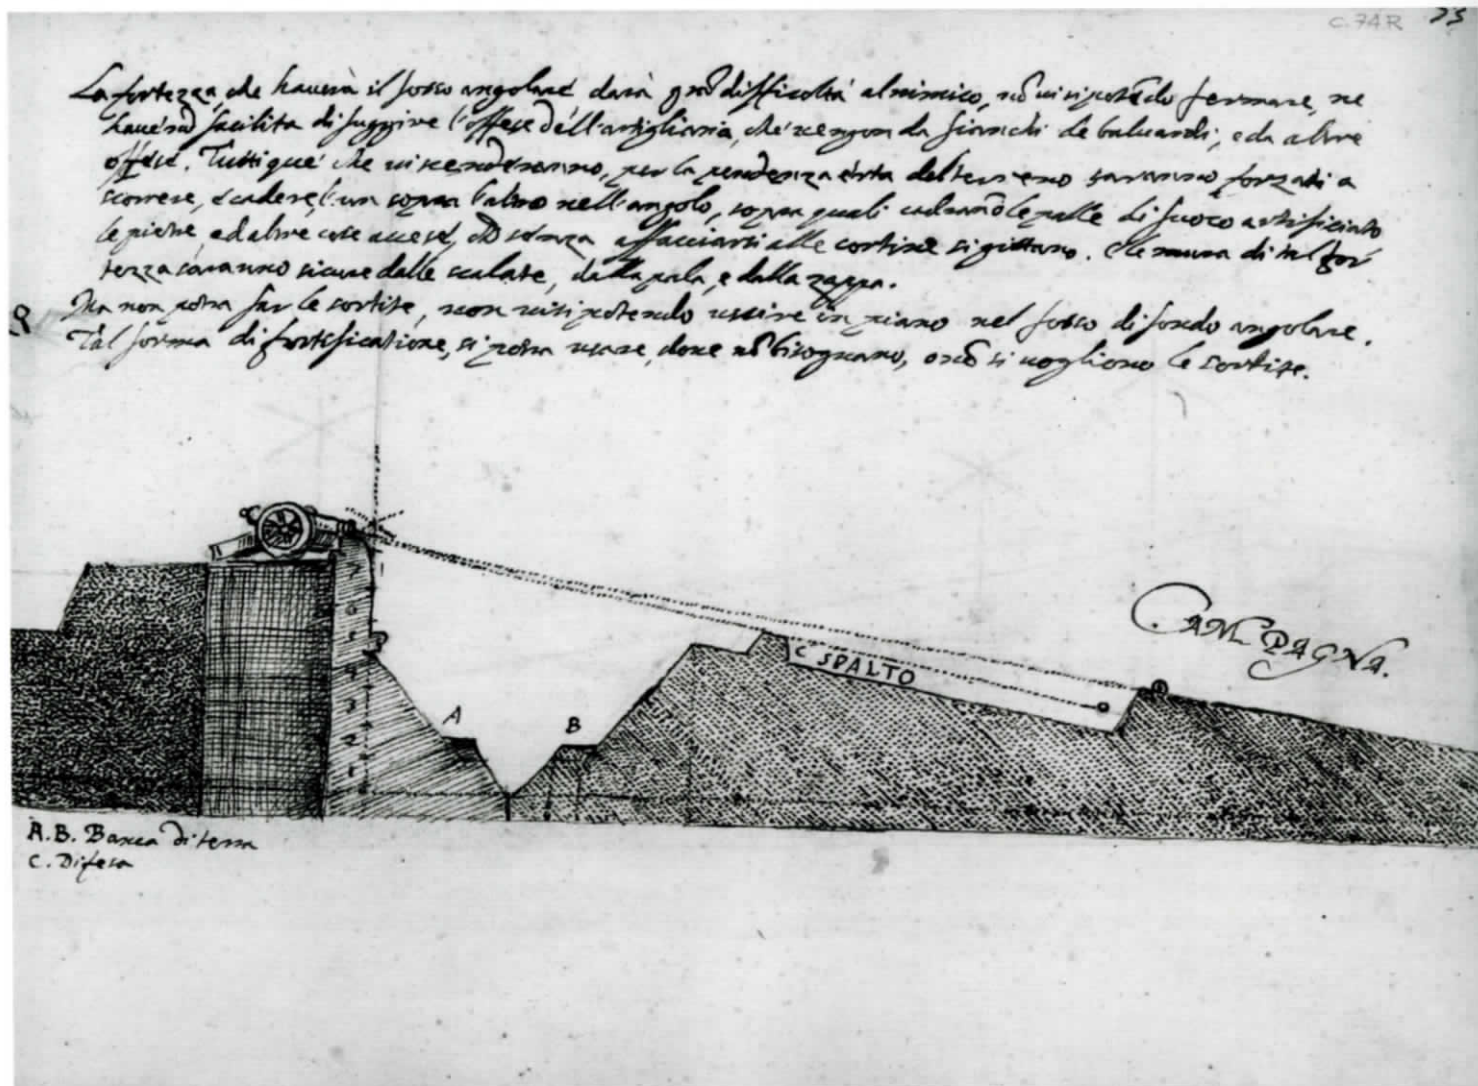 C. 74R 75
La fortezza, che haverà il fosso angolare darà grā difficoltà al nimico, nō visi potēdo fermare, ne
havēno facilita di fuggire l'offese dell'artigliaria, che vengon da fianchi de baluardi, e da altre
offese. Tutti que' che vi scenderanno, per la pendenza erta del terreno saranno forzati a
scorrere, e cadere, l'un sopra l'altro nell'angolo, sopra quali cadrānō le palle di fuoco artificiato
le pietre, ed altre cose accese, che senza affacciarsi alle cortine si gittano. E le mura di tal for
tezza saranno sicure dalle scalate, dalla pala, e dalla zappa.
Ma non potra far le sortite, non visi potendo uscire in piano nel fosso di fondo angolare.
Tal forma di fortificatione, si potra usare, dove nō bisognano, o nō si vogliono le sortite.
CAMPAGNA.
C SPALTO
7
6
5
4
3
2
1
A
B
A.B. Banca di terra
C. Difesa